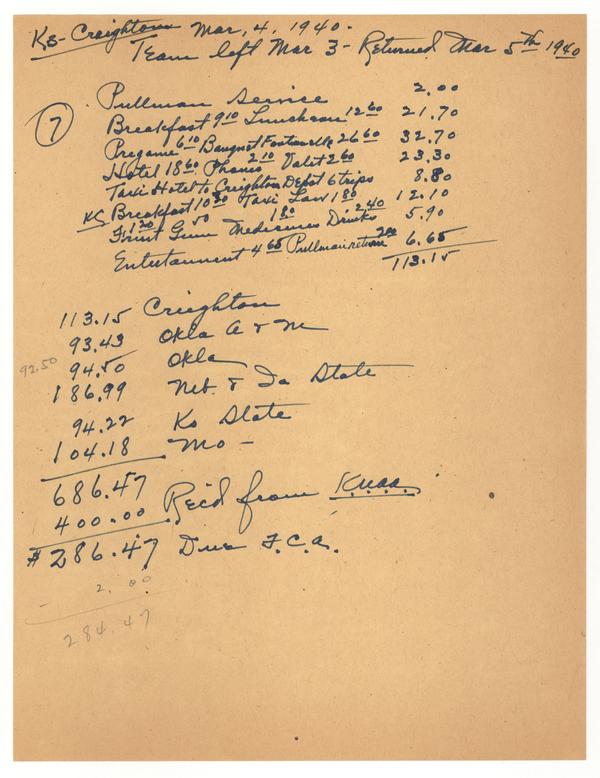 Ks-Creighton Mar, 4, 1940.
Team left Mar 3- Returned Mar 5th 1940
7
Pullman Service 2.00
Breakfast 9.10 Luncheon 12.60 21.70
Pregame 6.10 Banquet 26.60 32.70
Hotel 18.60 Phones 2.10 Valet 2.60 23.30
Taxi Hotel to Creighton Depot 6 trips 8.80
KC Breakfast 10.30 Taxi Law 1.80 12.10
Fruit 1.20 Gum .50 Medicines 1.80 Drinks 2.40 5.90
Entertainment 4.65 Pullman return 2.00 6.65
113.15
113.15 Creighton
93.43 Okla A & M
92.50 94.50 Okla
186.99 Neb. & Ia State
94.22 Ks State
104.18 Mo -
686.47
400.00 Rec'd from K.U.A.A.
$286.47 Due F.C.A.
- 2.00
284.47